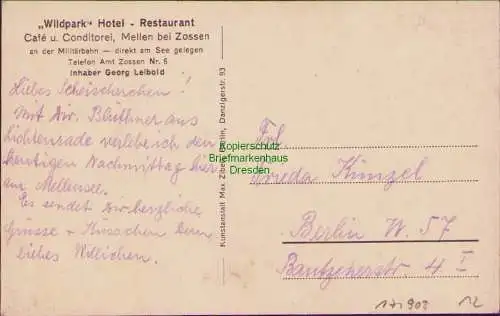 „Wildpark" Hotel - Restaurant
Café u. Conditorei, Mellen bei Zossen
an der Militärbahn — direkt am See gelegen
Telefon Amt Zossen Nr. 6
Inhaber Georg Leibold
Liebes !
Mit Dir. Blüthner aus
Lichtenrade verleb ich den
heutigen Nachmittag hier
am Mellensee.
Es sendet Dir herzliche
Grüsse + Küsschen Dein
liebes Willichen.
Kunstanstalt Max Zibell, Berlin, Danzigerstr. 93
Kopierschutz
Briefmarkenhaus
Dresden
Frl.
Frieda Künzel
Berlin W. 57
Bautzenerstr. 4 I
171902
12